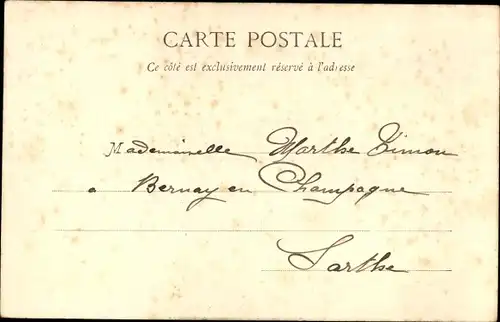 CARTE POSTALE
Ce côté est exclusivement réservé à l'adresse
Mademoiselle Marthe Timon
a Bernay en Champagne
Sarthe